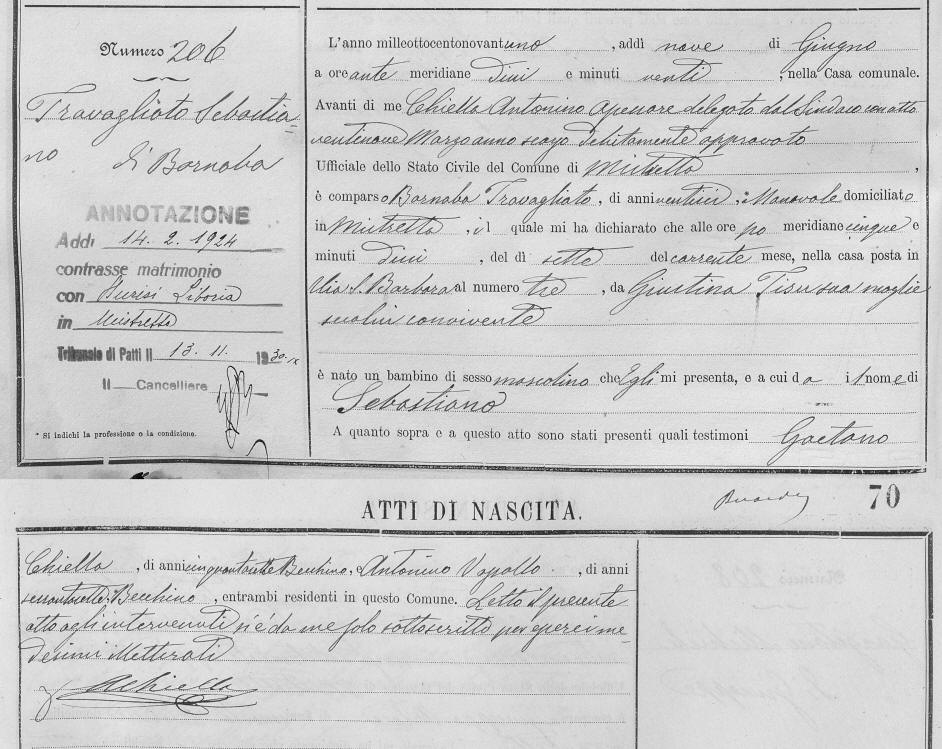 Numero 206
Travagliato Sebastia=
no
di Barnaba
ANNOTAZIONE
Addì 14. 2. 1924
contrasse matrimonio
con Liboria
in Mistretta
Tribunale di Patti li 13. 11. 1930. IX
Il Cancelliere
* Si indichi la professione o la condizione.
L'anno milleottocentonovantuno, addì nove di Giugno
a ore ante meridiane dieci e minuti venti, nella Casa comunale.
Avanti di me Chiella Antonino Assessore delegato dal Sindaco con atto
ventinove Marzo anno debitamente approvato
Ufficiale dello Stato Civile del Comune di Mistretta,
è comparso Barnaba Travagliato, di anni, Manovale domiciliato
in Mistretta, il quale mi ha dichiarato che alle ore po meridiane cinque e
minuti dieci, del dì sette del corrente mese, nella casa posta in
Via S. Barbara al numero tre, da Giustina Tisu sua moglie
seco lui convivente
è nato un bambino di sesso mascolino che Egli mi presenta, e a cui dà il nome di
Sebastiano
A quanto sopra e a questo atto sono stati presenti quali testimoni Gaetano
70
ATTI DI NASCITA.
Chiella, di anni Becchino, e Antonino Vassallo, di anni
sessantasette, Becchino, entrambi residenti in questo Comune. Letto il presente
atto agli intervenuti si è da me solo sottoscritto per essere i me=
desimi illetterati
AChiella